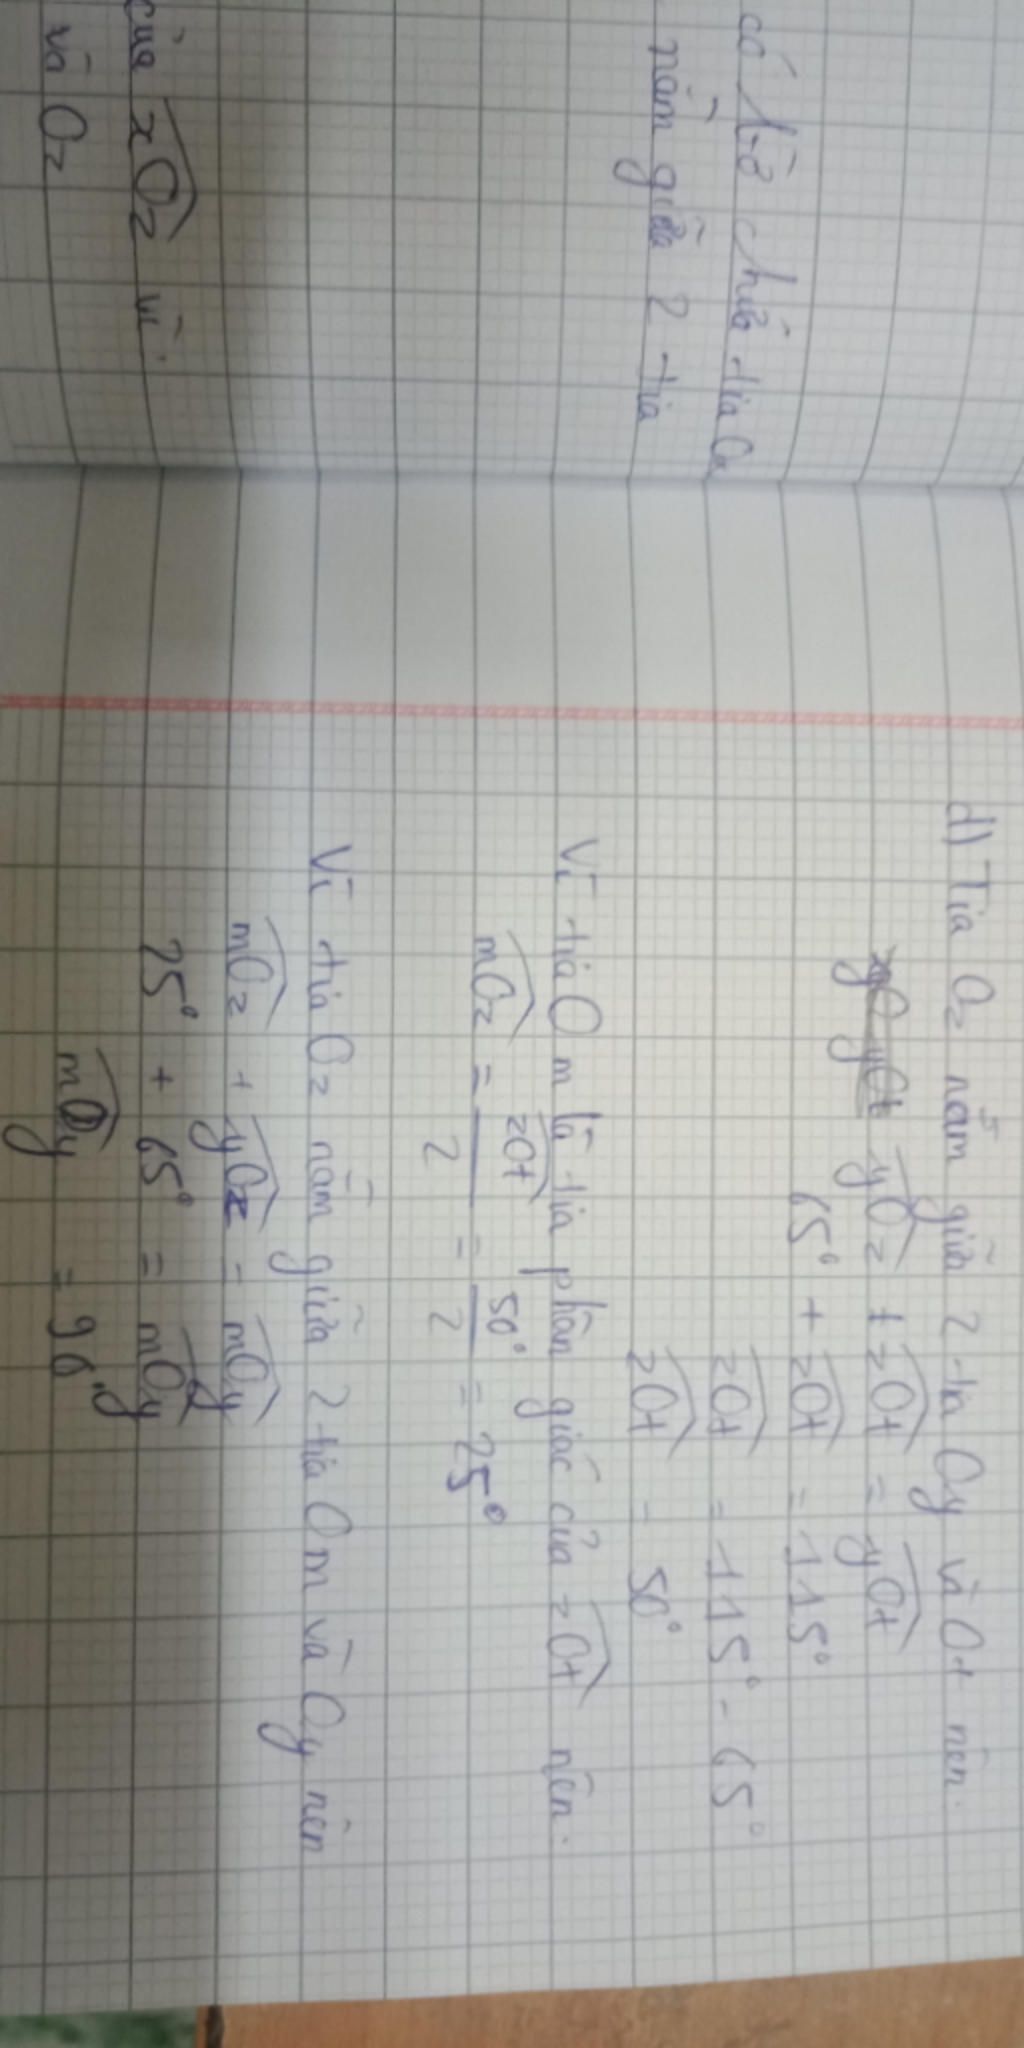 có bờ chứa tia Ox
nằm giữa 2 tia
của xOz vì
và Oz
d) Tia Oz nằm giữa 2 tia Oy và Ot nên:
yOz + zOt = yOt
65° + zOt = 115°
zOt = 115° - 65°
zOt = 50°
Vì tia Om là tia phân giác của zOt nên:
mOz = zOt / 2 = 50° / 2 = 25°
Vì tia Oz nằm giữa 2 tia Om và Oy nên
mOz + yOz = mOy
25° + 65° = mOy
mOy = 90°